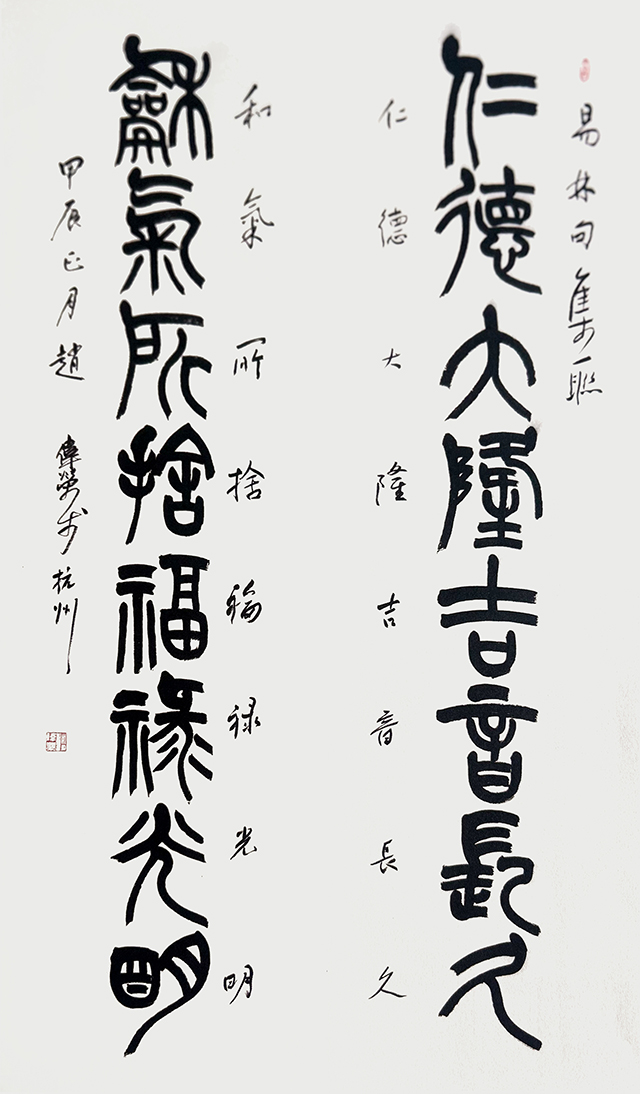 易林句集聯
仁德大隆吉音長久
仁德大隆吉音長久
龢氣所舍福祿光明
和氣所捨福祿光明
甲辰正月趙
傳榮於杭州